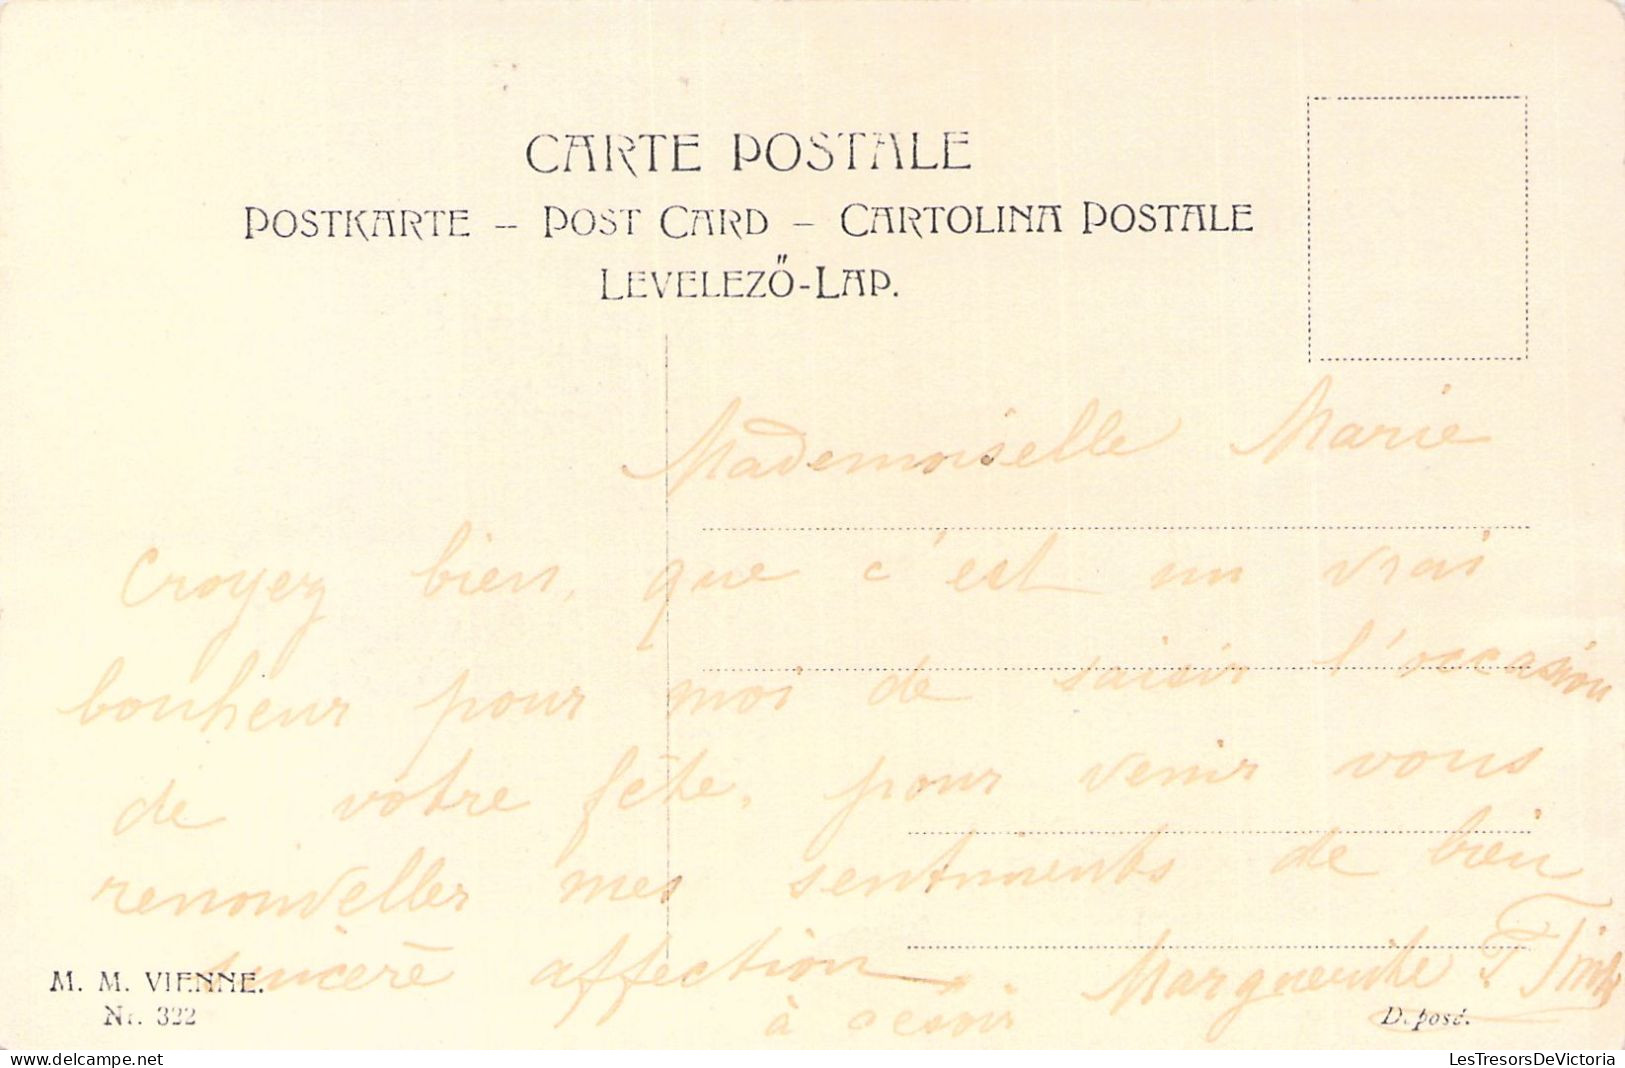 CARTE POSTALE
POSTKARTE -- POST CARD – CARTOLINA POSTALE
LEVELEZŐ-LAP.
Mademoiselle Marie
Croyez bien, que c'est un vrai
bonheur pour moi de saisir l'occasion
de votre fête, pour venir vous
renouveller mes sentiments de bien
sincère affection
à ce soir Marguerite
M. M. VIENNE.
Nr. 322
Déposé.
LesTresorsDeVictoria
delcampe.net